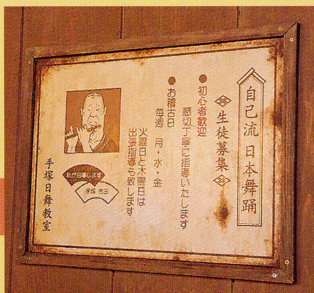 自己流 日本舞踊
生徒募集
●初心者歓迎
懇切丁寧に指導いたします
●お稽古日
毎週 月・水・金
火曜日と木曜日は
出張指導も致します
私が指導します
手塚
手塚日舞教室